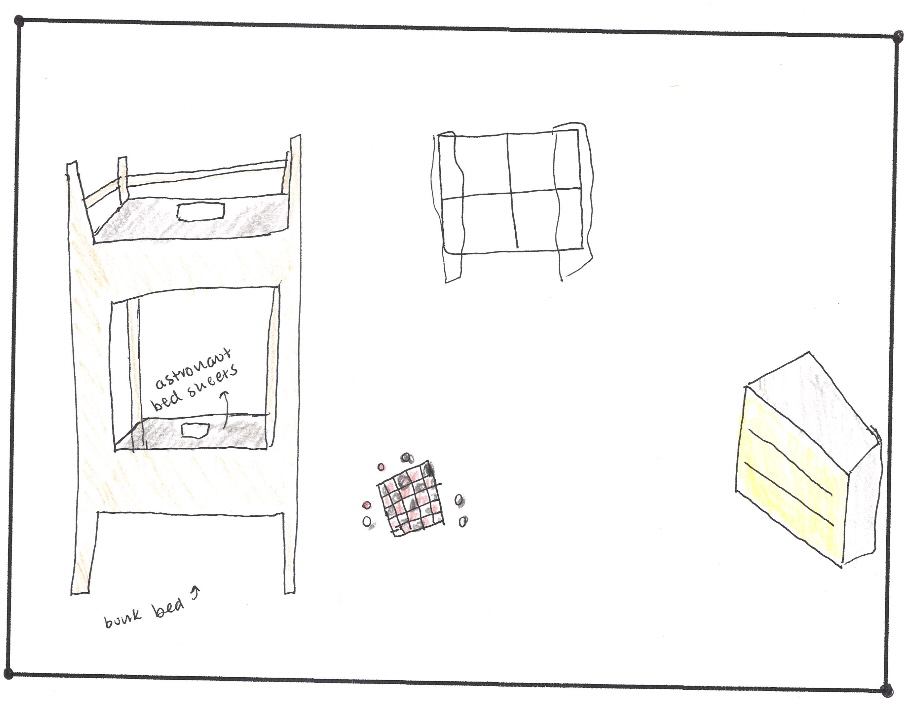 astronaut
bed sheets
bunk bed